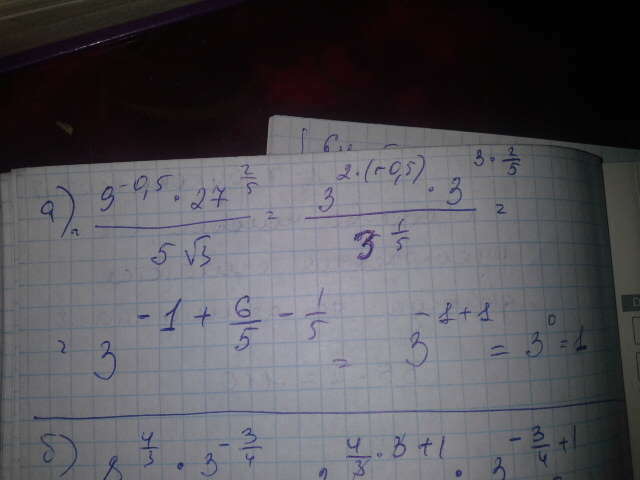 а) (9^(-0,5) · 27^(2/5)) / (5√3) = (3^(2·(-0,5)) · 3^(3·2/5)) / (3^(1/5)) =
= 3^(-1 + 6/5 - 1/5) = 3^(-1+1) = 3^0 = 1
б) 8^(4/3) · 3^(-3/4) 4/3 · 3 + 1 · 3^(-3/4 + 1)